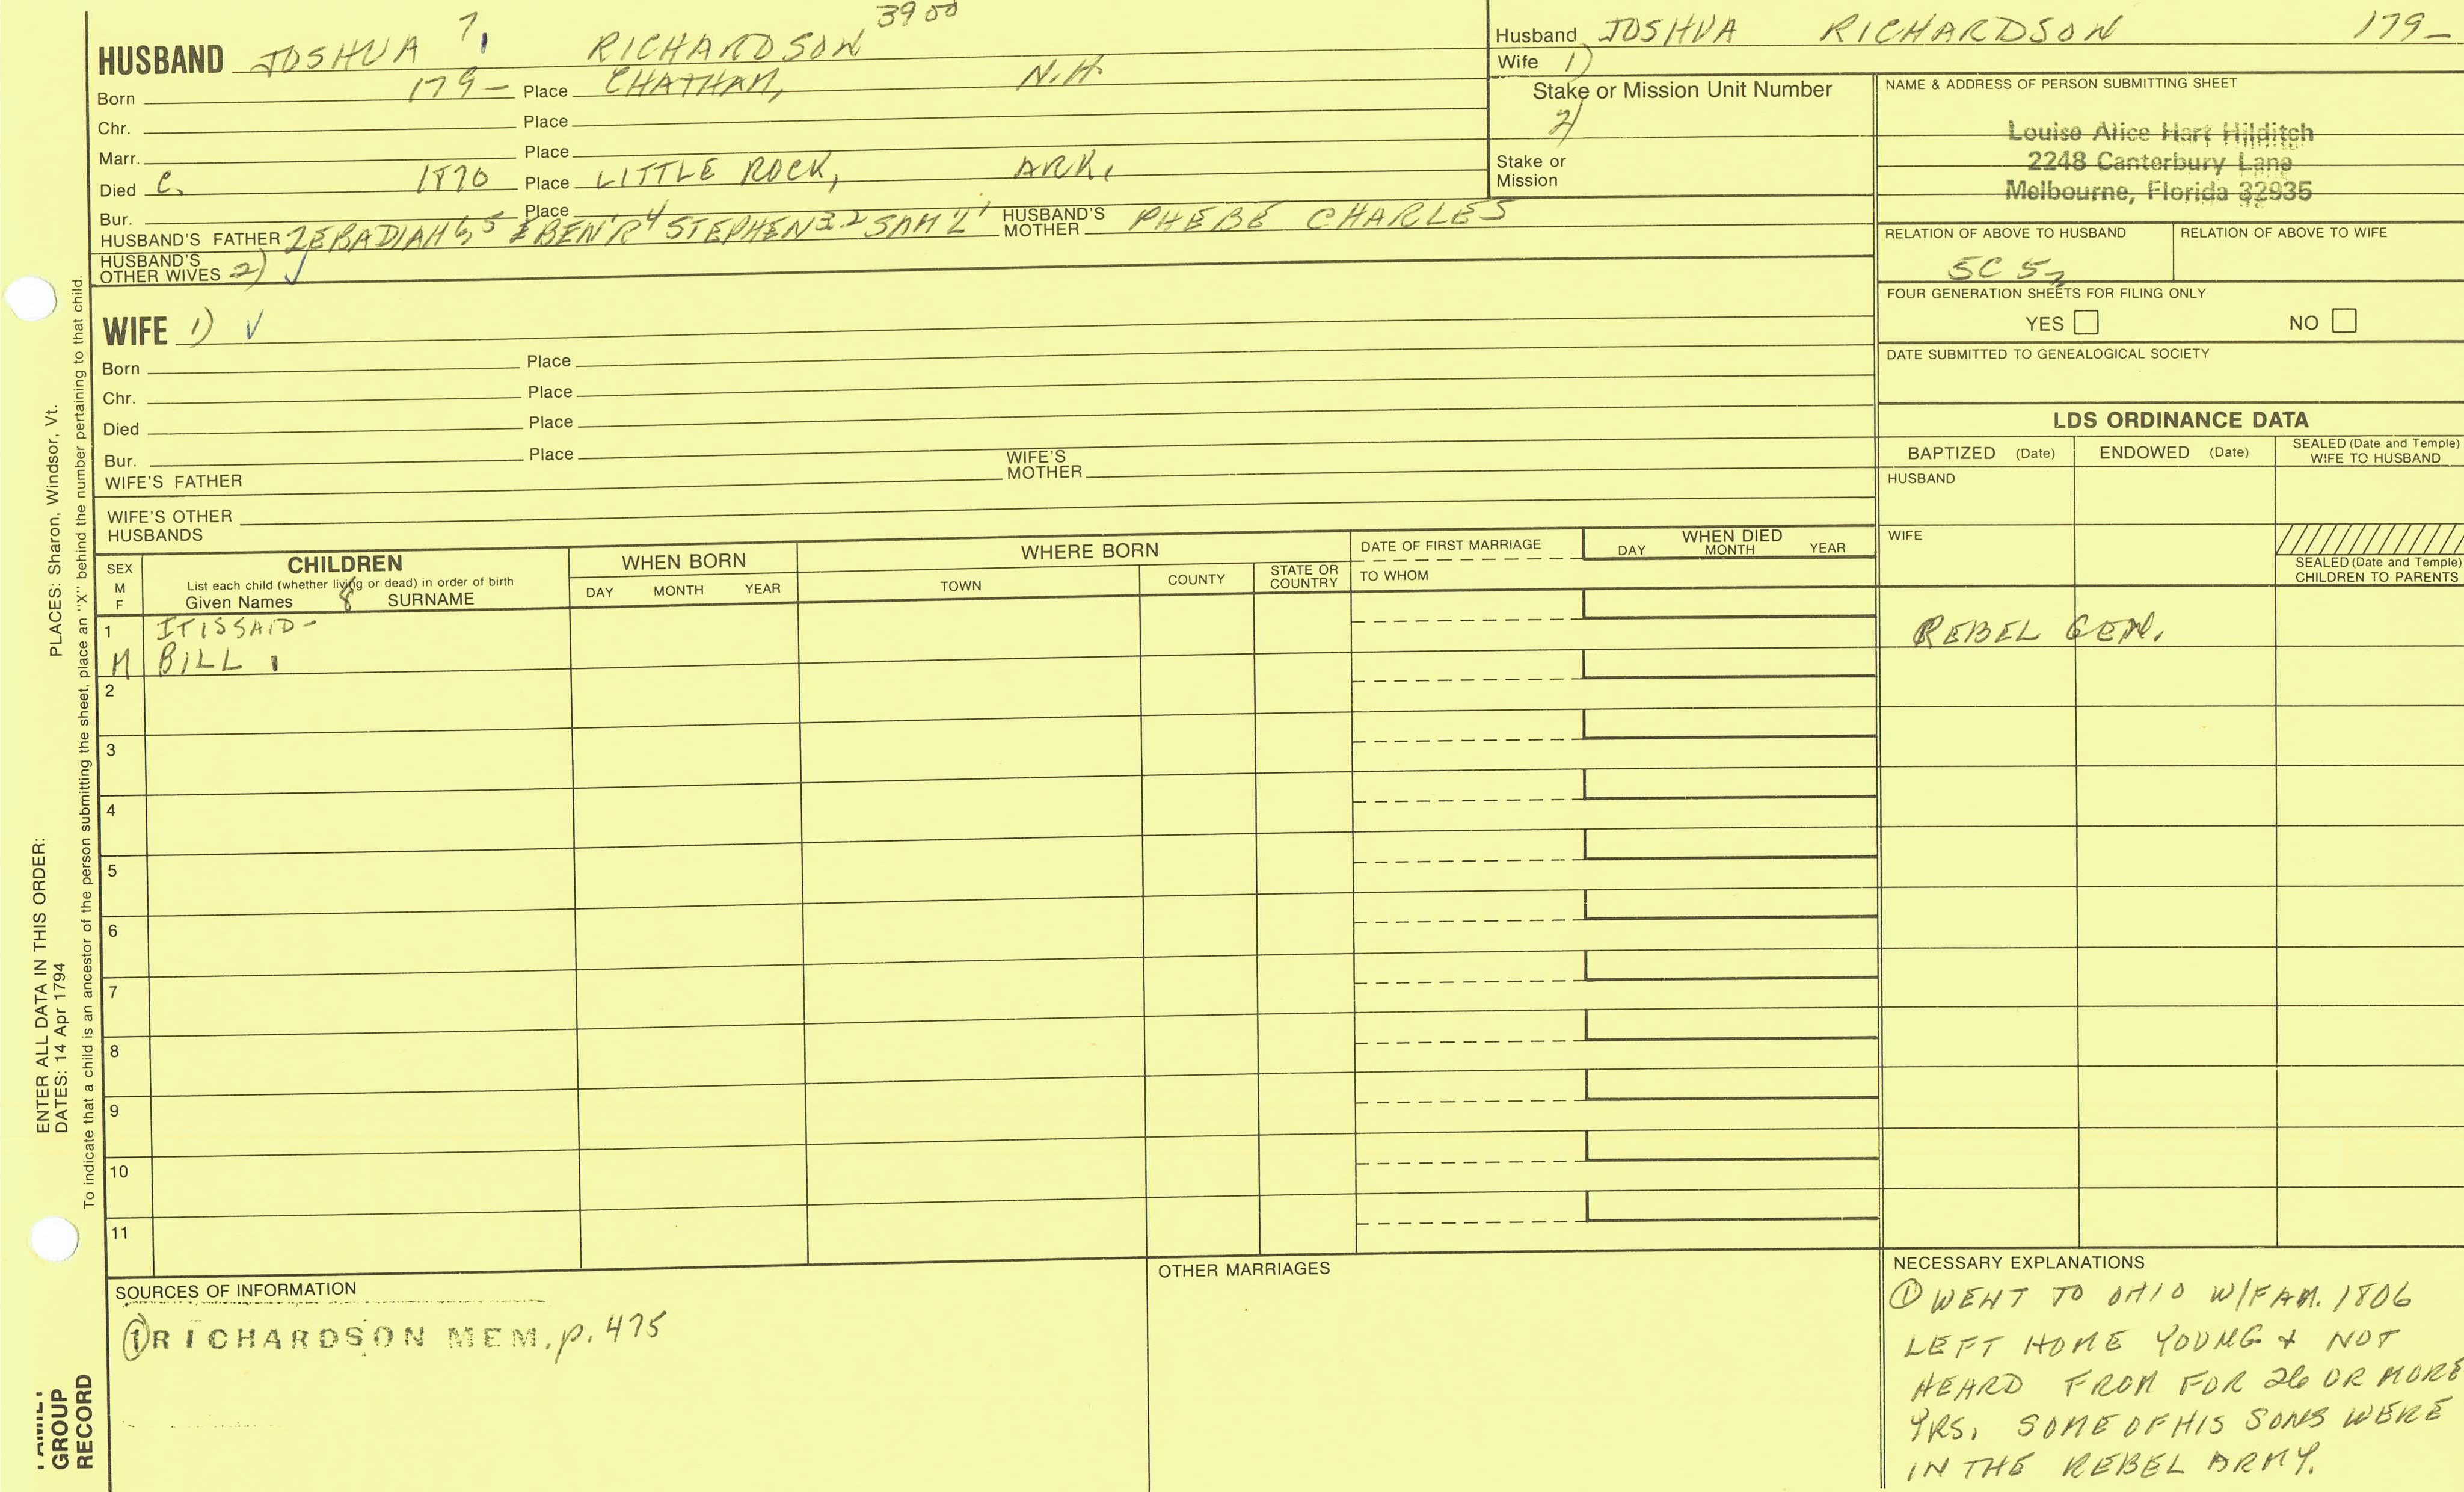 HUSBAND JOSHUA 7, RICHARDSON 3900
Born 179- Place CHATHAM, N.H.
Chr. Place
Marr. Place
Died C. 1870 Place LITTLE ROCK, ARK.
Bur. Place
HUSBAND'S FATHER ZEBADIAH 6, 5 EBEN'R 4 STEPHEN 3, 2 SAM'L 1 HUSBAND'S MOTHER PHEBE CHARLES
HUSBAND'S OTHER WIVES 2) ✓
WIFE 1) ✓
Born Place
Chr. Place
Died Place
Bur. Place
WIFE'S FATHER WIFE'S MOTHER
WIFE'S OTHER HUSBANDS
Husband JOSHUA RICHARDSON 179-
Wife 1)
Stake or Mission Unit Number
2)
Stake or Mission
NAME & ADDRESS OF PERSON SUBMITTING SHEET
Louise Alice Hart Hilditch
2248 Canterbury Lane
Melbourne, Florida 32935
RELATION OF ABOVE TO HUSBAND RELATION OF ABOVE TO WIFE
5C 5
FOUR GENERATION SHEETS FOR FILING ONLY
YES NO
DATE SUBMITTED TO GENEALOGICAL SOCIETY
LDS ORDINANCE DATA
BAPTIZED (Date) ENDOWED (Date) SEALED (Date and Temple) WIFE TO HUSBAND
HUSBAND
WIFE
SEALED (Date and Temple) CHILDREN TO PARENTS
SEX M F
CHILDREN
List each child (whether living or dead) in order of birth
Given Names 8 SURNAME
WHEN BORN
DAY MONTH YEAR
WHERE BORN
TOWN COUNTY STATE OR COUNTRY
DATE OF FIRST MARRIAGE
TO WHOM
WHEN DIED
DAY MONTH YEAR
1 IT IS SAID-
M BILL REBEL GEN.
2
3
4
5
6
7
8
9
10
11
SOURCES OF INFORMATION
① RICHARDSON MEM. p. 475
OTHER MARRIAGES
NECESSARY EXPLANATIONS
① WENT TO OHIO W/FAM. 1806
LEFT HOME YOUNG & NOT
HEARD FROM FOR 26 OR MORE
YRS. SOME OF HIS SONS WERE
IN THE REBEL ARMY.
ENTER ALL DATA IN THIS ORDER: PLACES: Sharon, Windsor, Vt.
DATES: 14 Apr 1794
To indicate that a child is an ancestor of the person submitting the sheet, place an "X" behind the number pertaining to that child.
FAMILY
GROUP
RECORD